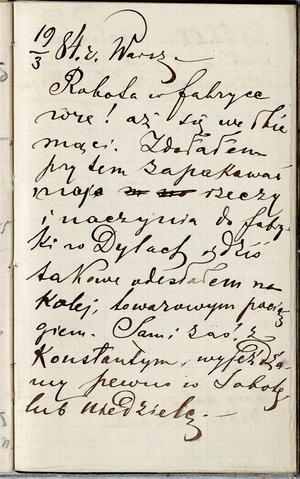 19/3 84. r. Warsz.
Robota w fabryce
wre! aż się we łbie
mąci. Zdołałem
przytem zapakować
moje rzeczy
i naczynia do fabry-
ki w Dylach, dziś
takowe odesłałem na
kolej, towarowym pocią-
giem. Sami zaś, z
Konstantym, wyjeżdża-
my pewno w Sobotę
lub Niedzielę. —